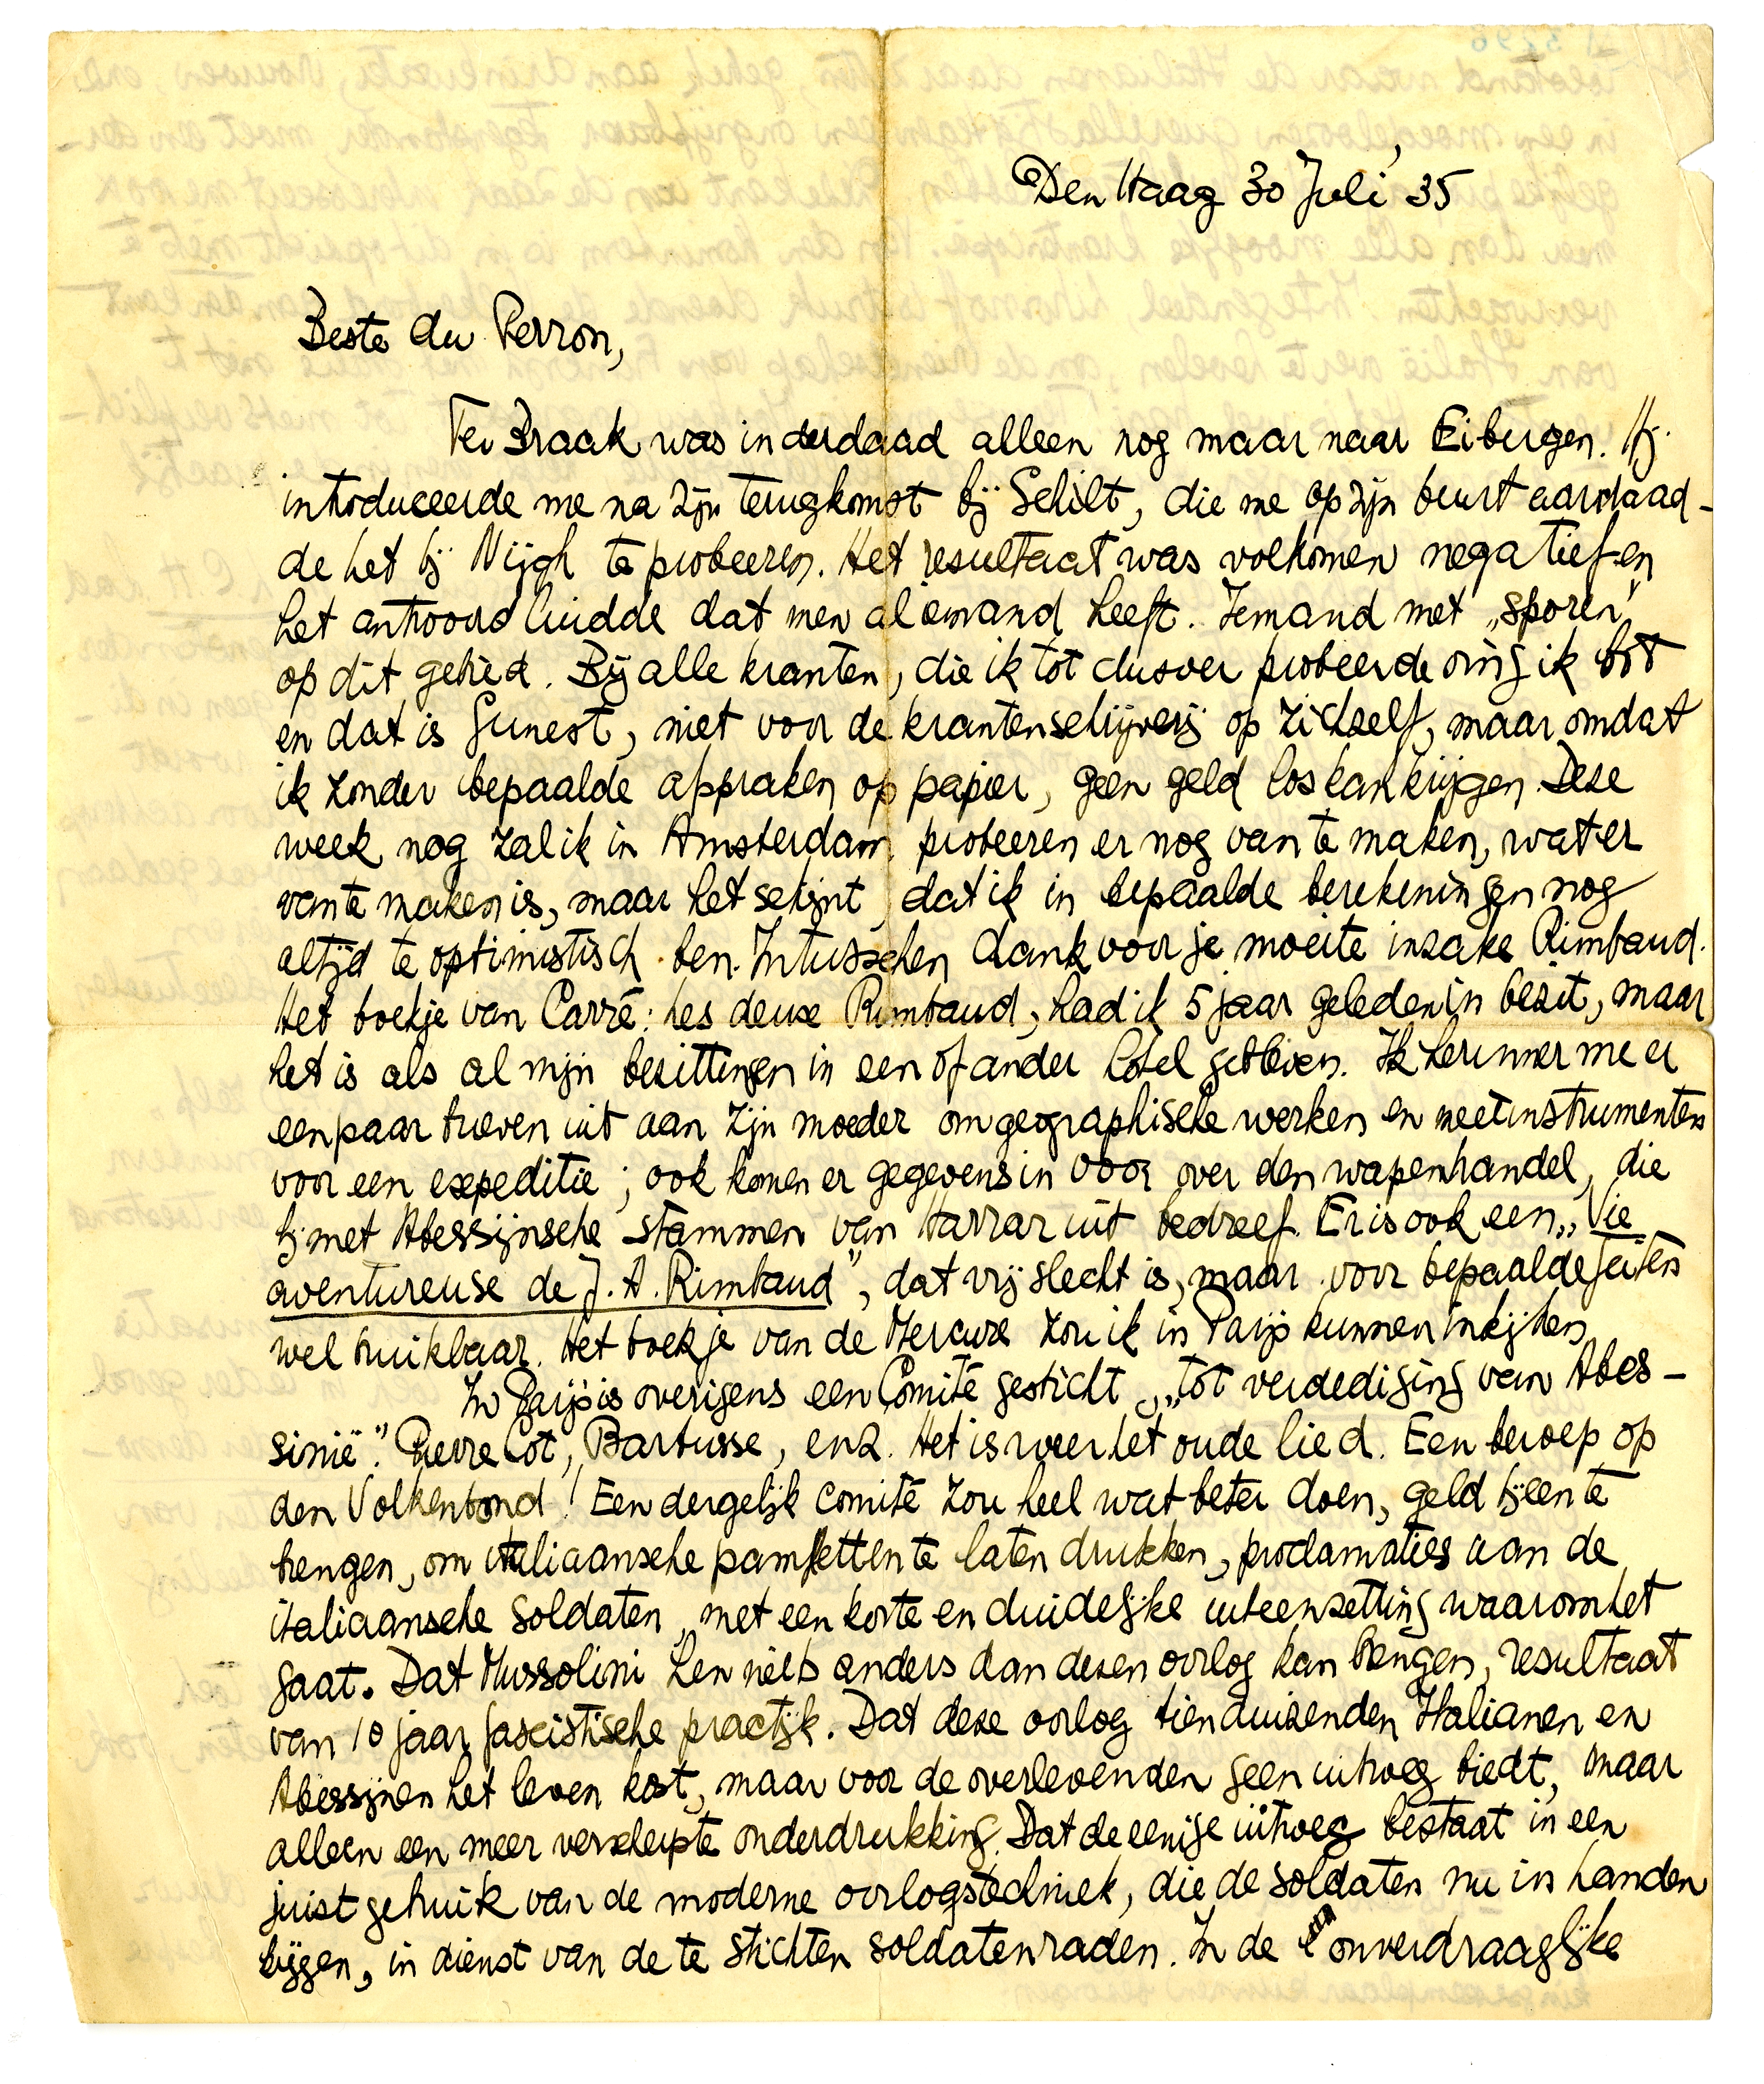 Den Haag 30 Juli '35
Beste du Perron,
Ter Braak was inderdaad alleen nog maar naar Eibergen. Hij
introduceerde me na zijn terugkomst bij Schilt, die me op zijn beurt aanraad-
de het bij Nijgh te probeeren. Het resultaat was volkomen negatief en
het antwoord luidde dat men al iemand heeft. Iemand met „sporen”
op dit gebied. Bij alle kranten, die ik tot dusver probeerde ving ik bot
en dat is funest, niet voor de krantenschrijverij op zichzelf, maar omdat
ik zonder bepaalde afspraken op papier, geen geld los kan krijgen. Deze
week nog zal ik in Amsterdam probeeren er nog van te maken, wat er
van te maken is, maar het schijnt dat ik in bepaalde berekeningen nog
altijd te optimistisch ben. Intusschen dank voor je moeite inzake Rimbaud.
Het boekje van Carré: Les deux Rimbaud, had ik 5 jaar geleden in bezit, maar
het is als al mijn bezittingen in een of ander hotel gebleven. Ik herinner me er
een paar brieven uit aan zijn moeder om geographische werken en meetinstrumenten
voor een expeditie; ook komen er gegevens in voor over den wapenhandel, die
hij met Abessijnsche stammen van Harrar uit bedreef. Er is ook een „Vie
aventureuse de J. A. Rimbaud”, dat vrij slecht is, maar voor bepaalde feiten
wel bruikbaar. Het boekje van de Mercure zou ik in Parijs kunnen inkijken.
In Parijs is overigens een Comité gesticht „tot verdediging van Abes-
sinië”. Pierre Cot, Barbusse, enz. Het is weer het oude lied. Een beroep op
den Volkenbond! Een dergelijk comité zou heel wat beter doen, geld bijeen te
brengen, om italiaansche pamfletten te laten drukken, proclamaties aan de
italiaansche soldaten, met een korte en duidelijke uiteenzetting waarom het
gaat. Dat Mussolini hen niets anders dan dezen oorlog kan brengen, resultaat
van 10 jaar fascistische practijk. Dat deze oorlog tienduizenden Italianen en
Abessijnen het leven kost, maar voor de overlevenden geen uitweg biedt, maar
alleen een meer verscherpte onderdrukking. Dat de eenige uitweg bestaat in een
juist gebruik van de moderne oorlogstechniek, die de soldaten nu in handen
krijgen, in dienst van de te stichten soldatenraden. In de onverdraaglijke